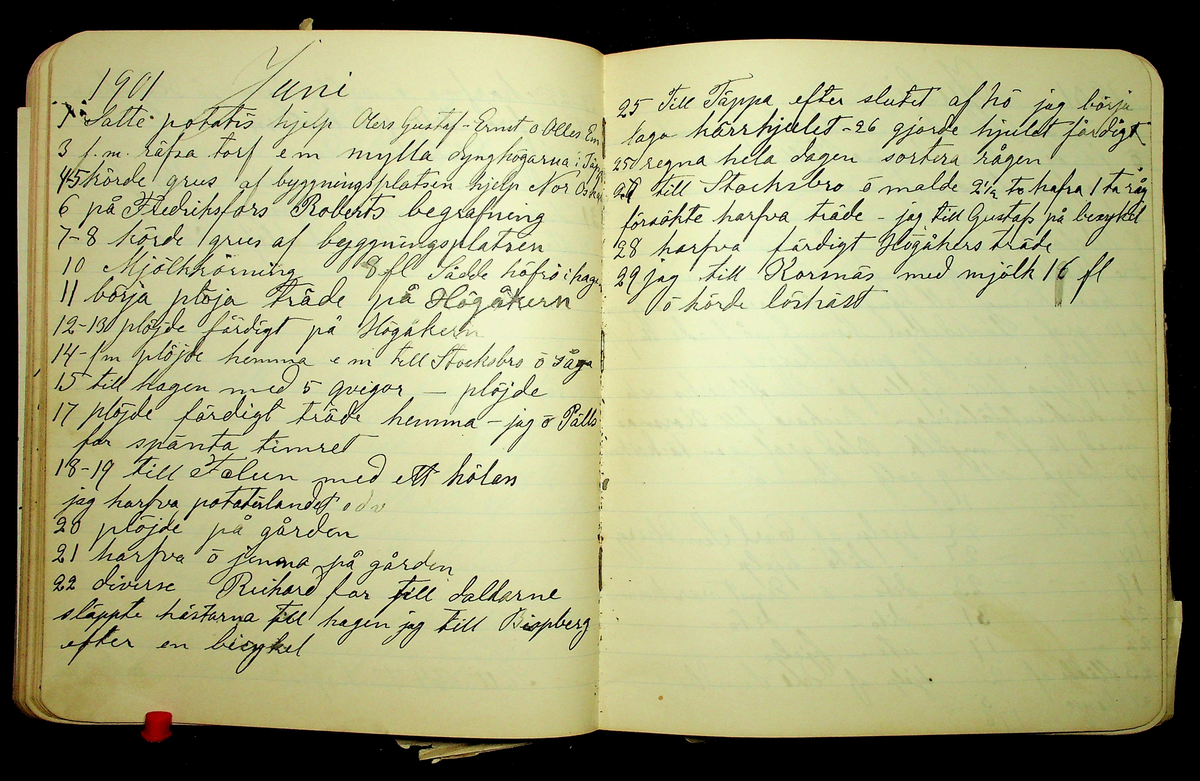 1901 Juni
1 Satte potatis hjelp Olers Gustaf-Ernst o Olles Em
3 f.m. räfsa torf e m mylla dynghögarna i Täpp
4 5 körde grus af byggningsplatsen hjelp Nor Os
6 på Fredriksfors Roberts begrafning
7-8 körde grus af byggningsplatsen
10 Mjölkkörning 8 fl Sådde höfrö i hage
11 börja plöja träde på Högåkern
12-13 plöjde färdigt på Högåkern
14- f m plöjde hemma e m till Stocksbro ö såga
15 till hagen med 5 qvigor — plöjde
17 plöjde färdigt träde hemma - jag ö Pälls
for spänta timret
18-19 till Falun med ett hölass
jag harfva potatislandet o d v
20 plöjde på gården
21 harfva ö jemna på gården
22 diverse Richard for till dalkarne
släppte hästarna till hagen jag till Bispberg
efter en bicykel
25 Till Täppa efter slutet af hö jag börja
laga kärrhjulet - 26 gjorde hjulet färdigt
25 regna hela dagen sortera rågen
27 till Stocksbro ö malde 2½ t hafra 1 ta råg
försökte harfva träde - jag till Gustafs på bicykel
28 harfva färdigt Högåkers träde
29 jag till Korsnäs med mjölk 16 fl
ö körde löshäst